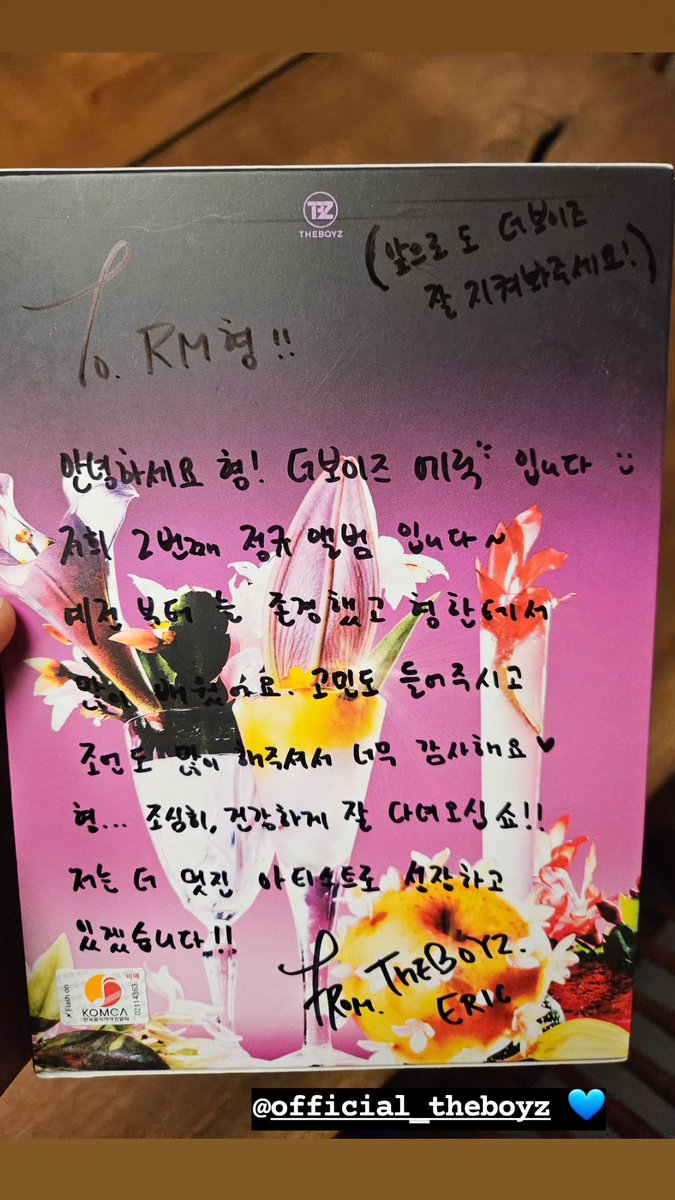 TBZ
THEBOYZ
(앞으로도 더보이즈
잘 지켜봐주세요!)
To. RM형!!
안녕하세요 형! 더보이즈 에릭 입니다
저희 2번째 정규 앨범 입니다~
예전 부터 늘 존경했고 형한테서
많이 배웠어요. 고민도 들어주시고
조언도 많이 해주셔서 너무 감사해요♥
형... 조심히, 건강하게 잘 다녀오십쇼!!
저는 더 멋진 아티스트로 성장하고
있겠습니다!!
FROM. THEBOYZ.
ERIC
Flash on
비매
KOMCA
한국음악저작권협회
02114363
@official_theboyz 💙